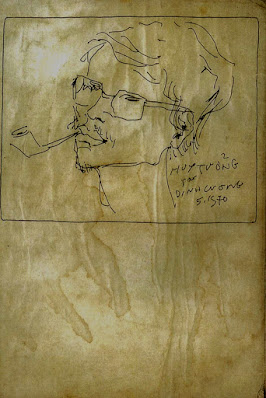 HUY TƯỞNG
par
ĐINH CƯỜNG
5.1970